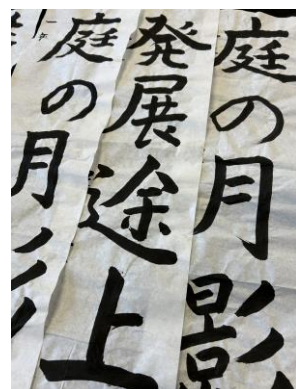 庭の月影
発展途上
庭の月影